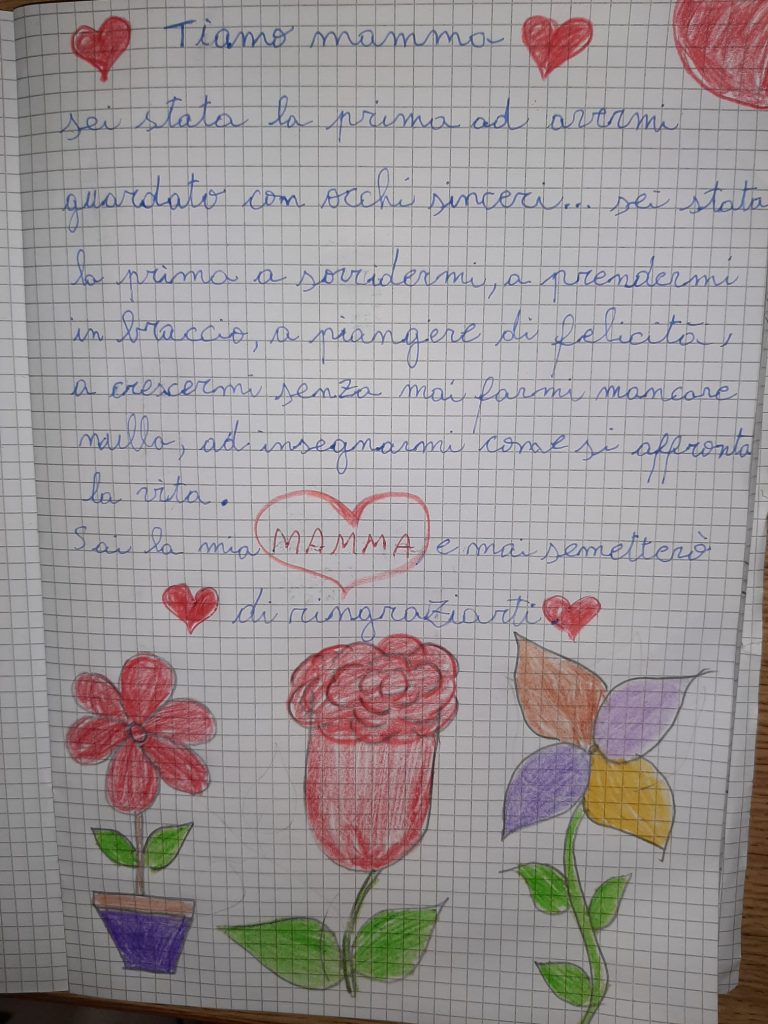 Tiamo mamma
sei stata la prima ad avermi
guardato con occhi sinceri... sei stata
la prima a sorridermi, a prendermi
in braccio, a piangere di felicità,
a crescermi senza mai farmi mancare
nulla, ad insegnarmi come si affronta
la vita.
Sai la mia MAMMA e mai semetterò
di ringraziarti.